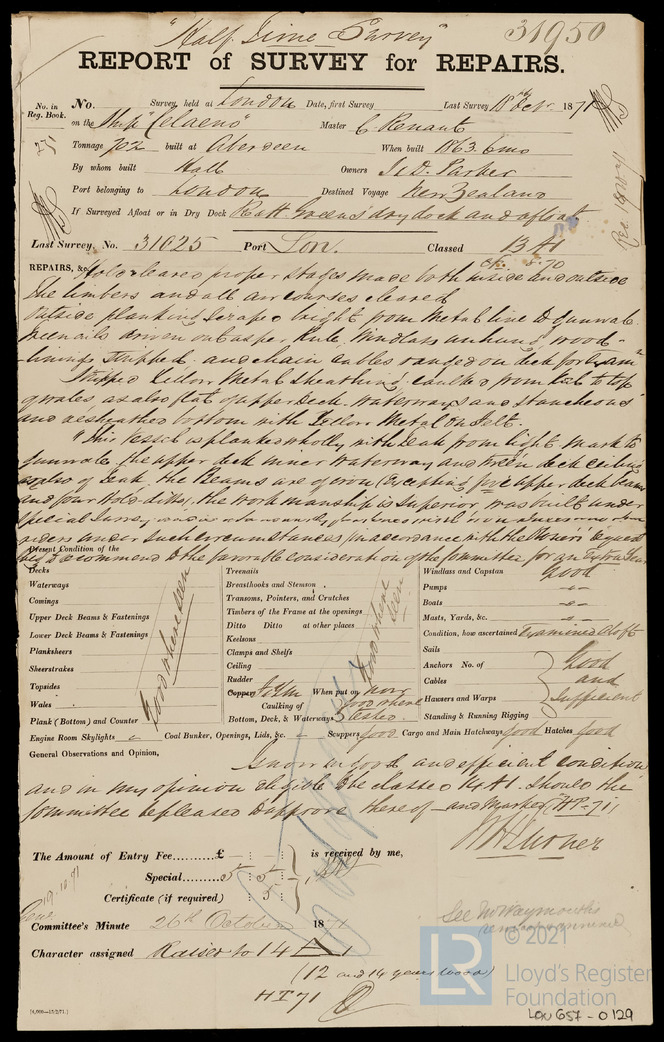 "Half Time Survey"
31950
REPORT of SURVEY for REPAIRS.
No. in Reg. Book.
No. Survey, held at London Date, first Survey Last Survey 18th Octr. 1871
on the Ship "Celaeno" Master C Renaut
Tonnage 702 built at Aberdeen When built 1863. 6mo
By whom built Hall Owners J. D. Parker
Port belonging to London Destined Voyage New Zealand
If Surveyed Afloat or in Dry Dock R & H. Greens dry dock and afloat
Last Survey, No. 31025 Port Lon. Classed 13 A1
REPAIRS, &c. Hold cleared proper stages made both inside and outside
The limbers and all air courses cleared
outside planking scraped bright from metal line to Gunwale
Treenails driven out as per Rule. Windlass unhung, wood
linings stripped and chain cables ranged on deck for exam
Stripped Yellow Metal sheathing, caulked from keel to top
of wales as also flat of upper Deck, waterways and stancheons
and resheathed bottom with Yellow Metal on Felt.
"This Vessel is planked wholly with Teak from light mark to
Gunwale, the upper deck inner waterway and tween deck ceiling
also of Teak. the Beams are of iron (Excepting five upper deck beams
and four Hold ditto), the workmanship is superior, was built under
special Survey
riders under such circumstances in accordance with the Owners request
beg to recommend to the favorable consideration of the Committee for an Extra Year
Present Condition of the
Decks
Waterways
Comings
Upper Deck Beams & Fastenings
Lower Deck Beams & Fastenings
Planksheers
Sheerstrakes
Topsides
Wales
Plank (Bottom) and Counter
Good where seen
Engine Room Skylights Coal Bunker, Openings, Lids, &c. Scuppers Good Cargo and Main Hatchways Good Hatches Good
Treenails
Breasthooks and Stemson
Transoms, Pointers, and Crutches
Timbers of the Frame at the openings
Ditto Ditto at other places
Keelsons
Clamps and Shelfs
Ceiling
Rudder
Good where seen
Copper When put on now
Caulking of Good where
Bottom, Deck, & Waterways tested.
Windlass and Capstan Good
Pumps
Boats
Masts, Yards, &c.
Condition, how ascertained Examined Aloft
Sails
Anchors No. of
Cables
Hawsers and Warps
Standing & Running Rigging
Good
and
Sufficient
General Observations and Opinion,
Is now in good and efficient condition
and in my opinion eligible to be classed 14 A1. Should the
Committee be pleased to approve thereof and marked "HT-71"
The Amount of Entry Fee.........£ : : is received by me,
Special......... 5 : 5 :
Certificate (if required) : 5 :
Committee's Minute 26th October 1871
Character assigned Raised to 14 A 1
(12 and 14 years wood)
HT 71
See Mr Waymouth's
[4,000—15/2/71.]
LR
© 2021
Lloyd's Register
Foundation
LON 657 - 0129